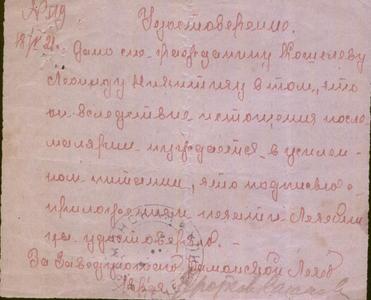 № 519
Удостоверение.
18/IV 21. Дано сие гражданину Кошелеву
Леониду Никитичу в том, что
он вследствие истощения после
малярии нуждается в усилен-
ном питании, что подписью с
приложением печати Лечебни
цы удостоверяю. —
За Заведующего Лечеб
Врач